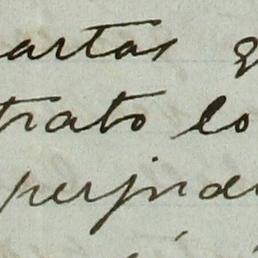 artas
trato lo
perjud